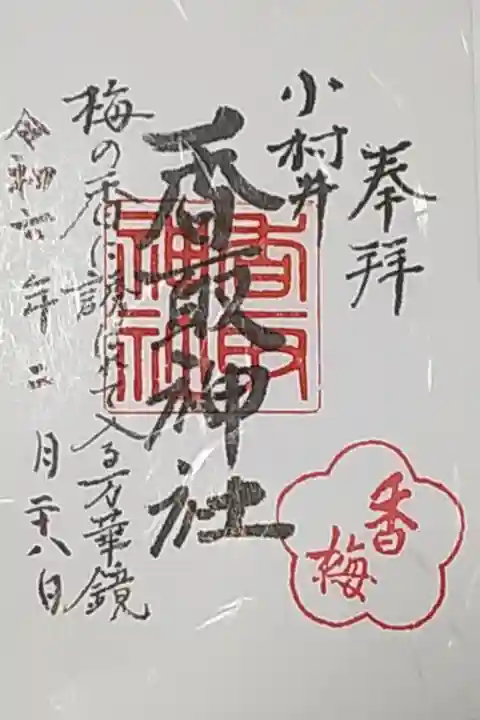 奉拝
小村井
香取神社
香取
神社
梅の香に誘われて入る万華鏡
令和六年二月二十八日
香
梅